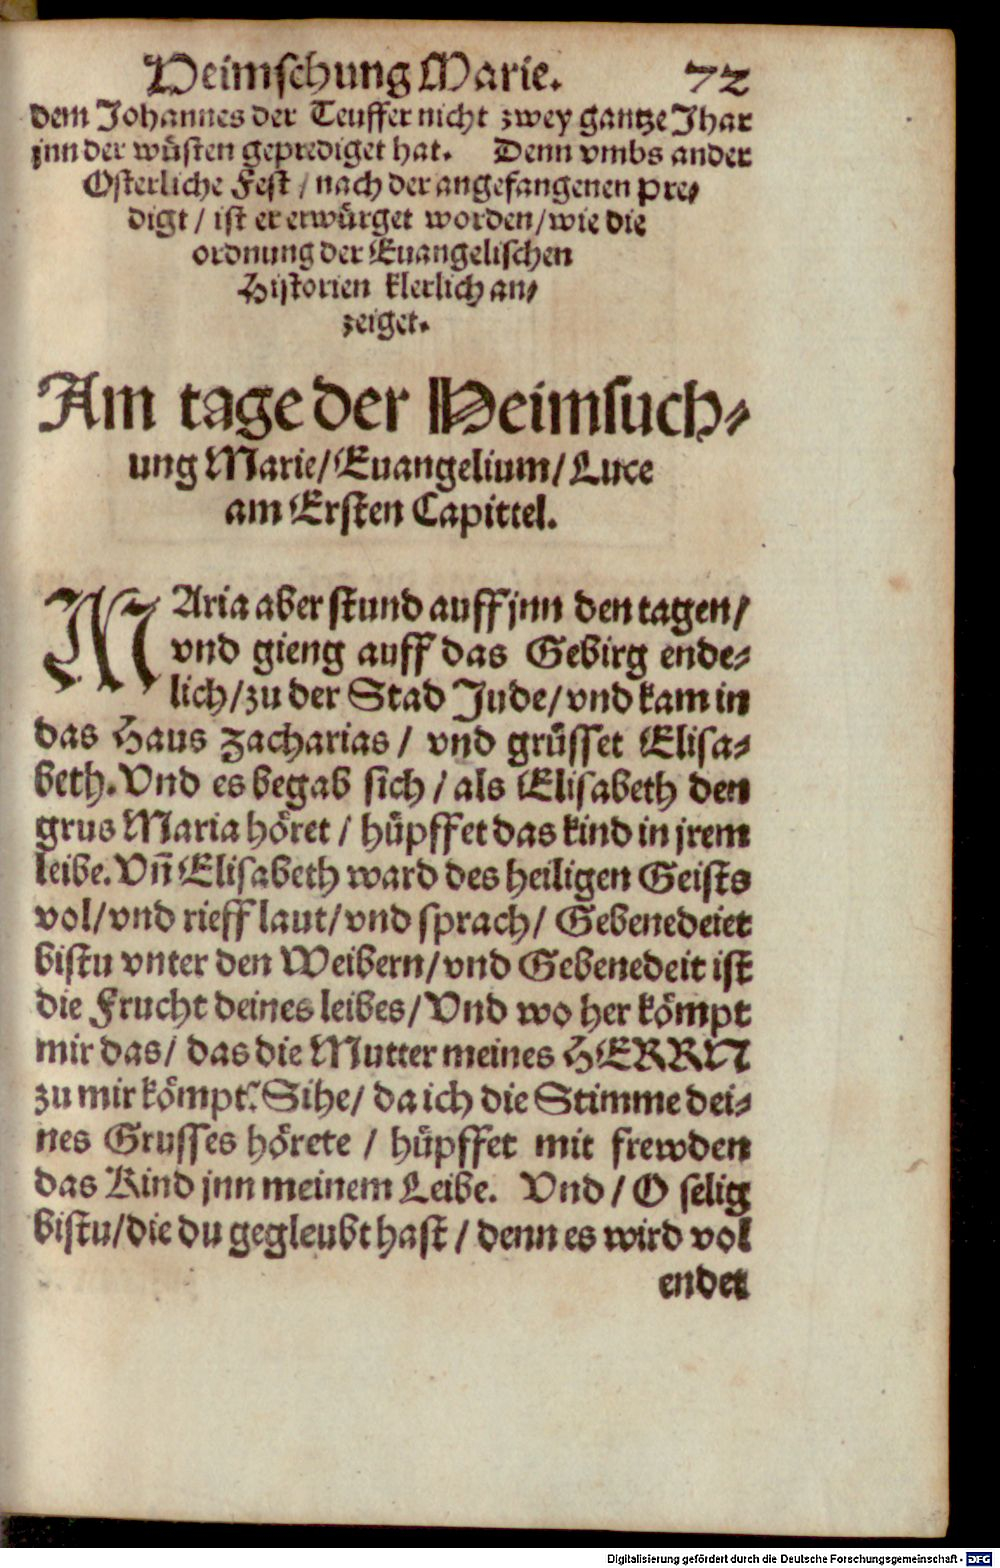 Heimschung Marie. 72
dem Johannes der Teuffer nicht zwey gantze Jhar
jnn der wüsten geprediget hat. Denn vmbs ander
Osterliche Fest / nach der angefangenen pre⸗
digt / ist er erwürget worden / wie die
ordnung der Euangelischen
Historien klerlich an⸗
zeiget.
Am tage der Heimsuch⸗
ung Marie / Euangelium / Luce
am Ersten Capittel.
MAria aber stund auff jnn den tagen /
vnd gieng auff das Gebirg ende⸗
lich / zu der Stad Jude / vnd kam in
das Haus Zacharias / vnd grüsset Elisa⸗
beth. Vnd es begab sich / als Elisabeth den
grus Maria höret / hüpffet das kind in jrem
leibe. Vñ Elisabeth ward des heiligen Geists
vol / vnd rieff laut / vnd sprach / Gebenedeiet
bistu vnter den Weibern / vnd Gebenedeit ist
die Frucht deines leibes / Vnd wo her kömpt
mir das / das die Mutter meines HERRN
zu mir kömpt? Sihe / da ich die Stimme dei⸗
nes Grusses hörete / hüpffet mit frewden
das Kind jnn meinem Leibe. Vnd / O selig
bistu / die du gegleubt hast / denn es wird vol
endet
Digitalisierung gefördert durch die Deutsche Forschungsgemeinschaft - DFG